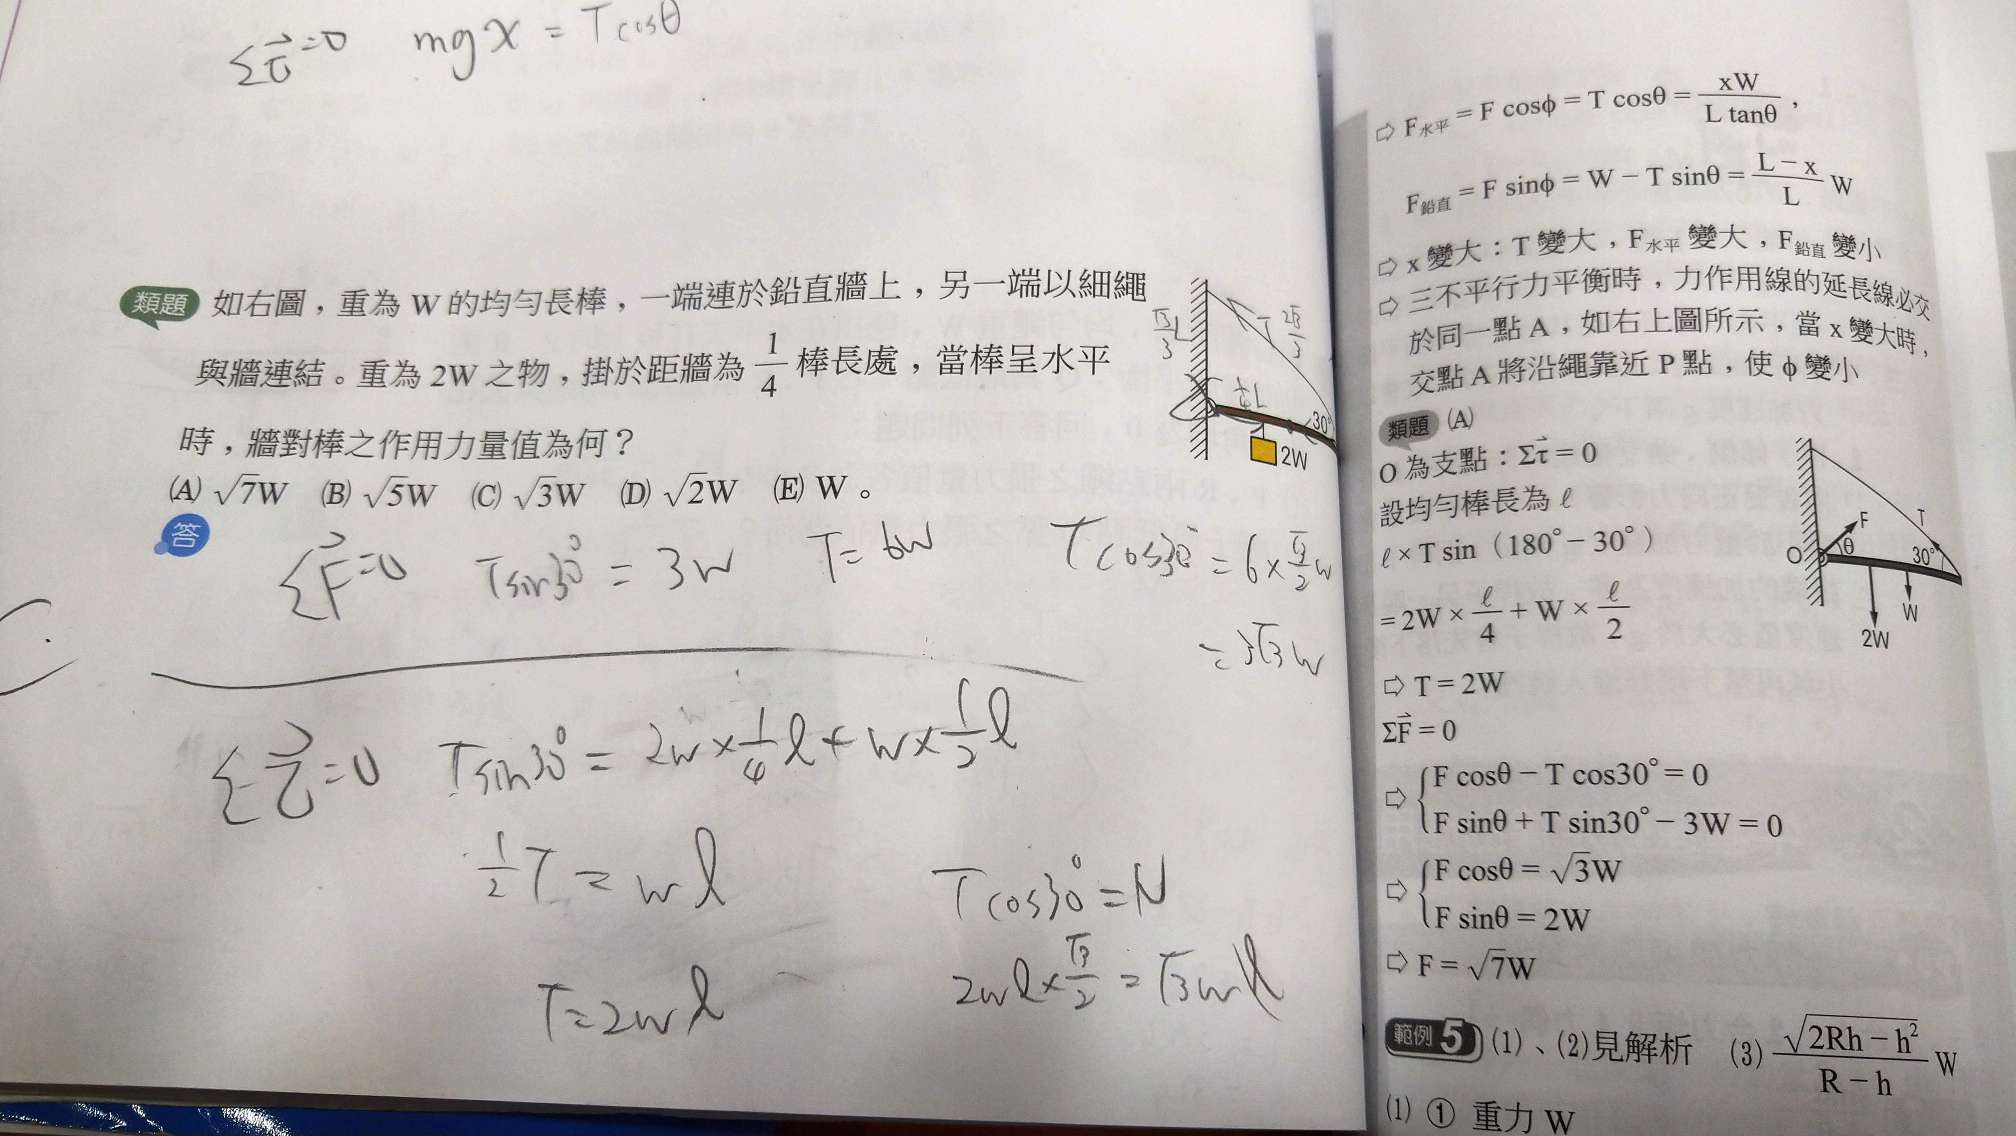 Στ⃗=0 mgx = Tcosθ
類題 如右圖，重為 W 的均勻長棒，一端連於鉛直牆上，另一端以細繩
與牆連結。重為 2W 之物，掛於距牆為 1/4 棒長處，當棒呈水平
時，牆對棒之作用力量值為何？
(A) √7W (B) √5W (C) √3W (D) √2W (E) W。
答
√3/3 L
T
2√3/3
1/4 L
30°
2W
ΣF⃗=0 Tsin30° = 3W T=6W Tcos30° = 6×√3/2 W
= 3√3W
Στ⃗=0 Tsin30° = 2W×1/4 ℓ + W×1/2 ℓ
1/2 T = Wℓ
T=2Wℓ
Tcos30° = N
2Wℓ×√3/2 = √3Wℓ
⇨ F水平 = F cosϕ = T cosθ = xW / L tanθ，
F鉛直 = F sinϕ = W − T sinθ = (L − x)/L W
⇨ x 變大：T 變大，F水平 變大，F鉛直 變小
⇨ 三不平行力平衡時，力作用線的延長線必交
於同一點 A，如右上圖所示，當 x 變大時，
交點 A 將沿繩靠近 P 點，使 ϕ 變小
類題 (A)
O 為支點：Στ⃗ = 0
設均勻棒長為 ℓ
ℓ × T sin（180° − 30°）
= 2W × ℓ/4 + W × ℓ/2
⇨ T = 2W
ΣF⃗ = 0
⇨ { F cosθ − T cos30° = 0
F sinθ + T sin30° − 3W = 0
⇨ { F cosθ = √3W
F sinθ = 2W
⇨ F = √7W
F
T
O
θ
30°
W
2W
範例 5 (1)、(2)見解析 (3) √(2Rh − h²) / (R − h) W
(1) ① 重力 W